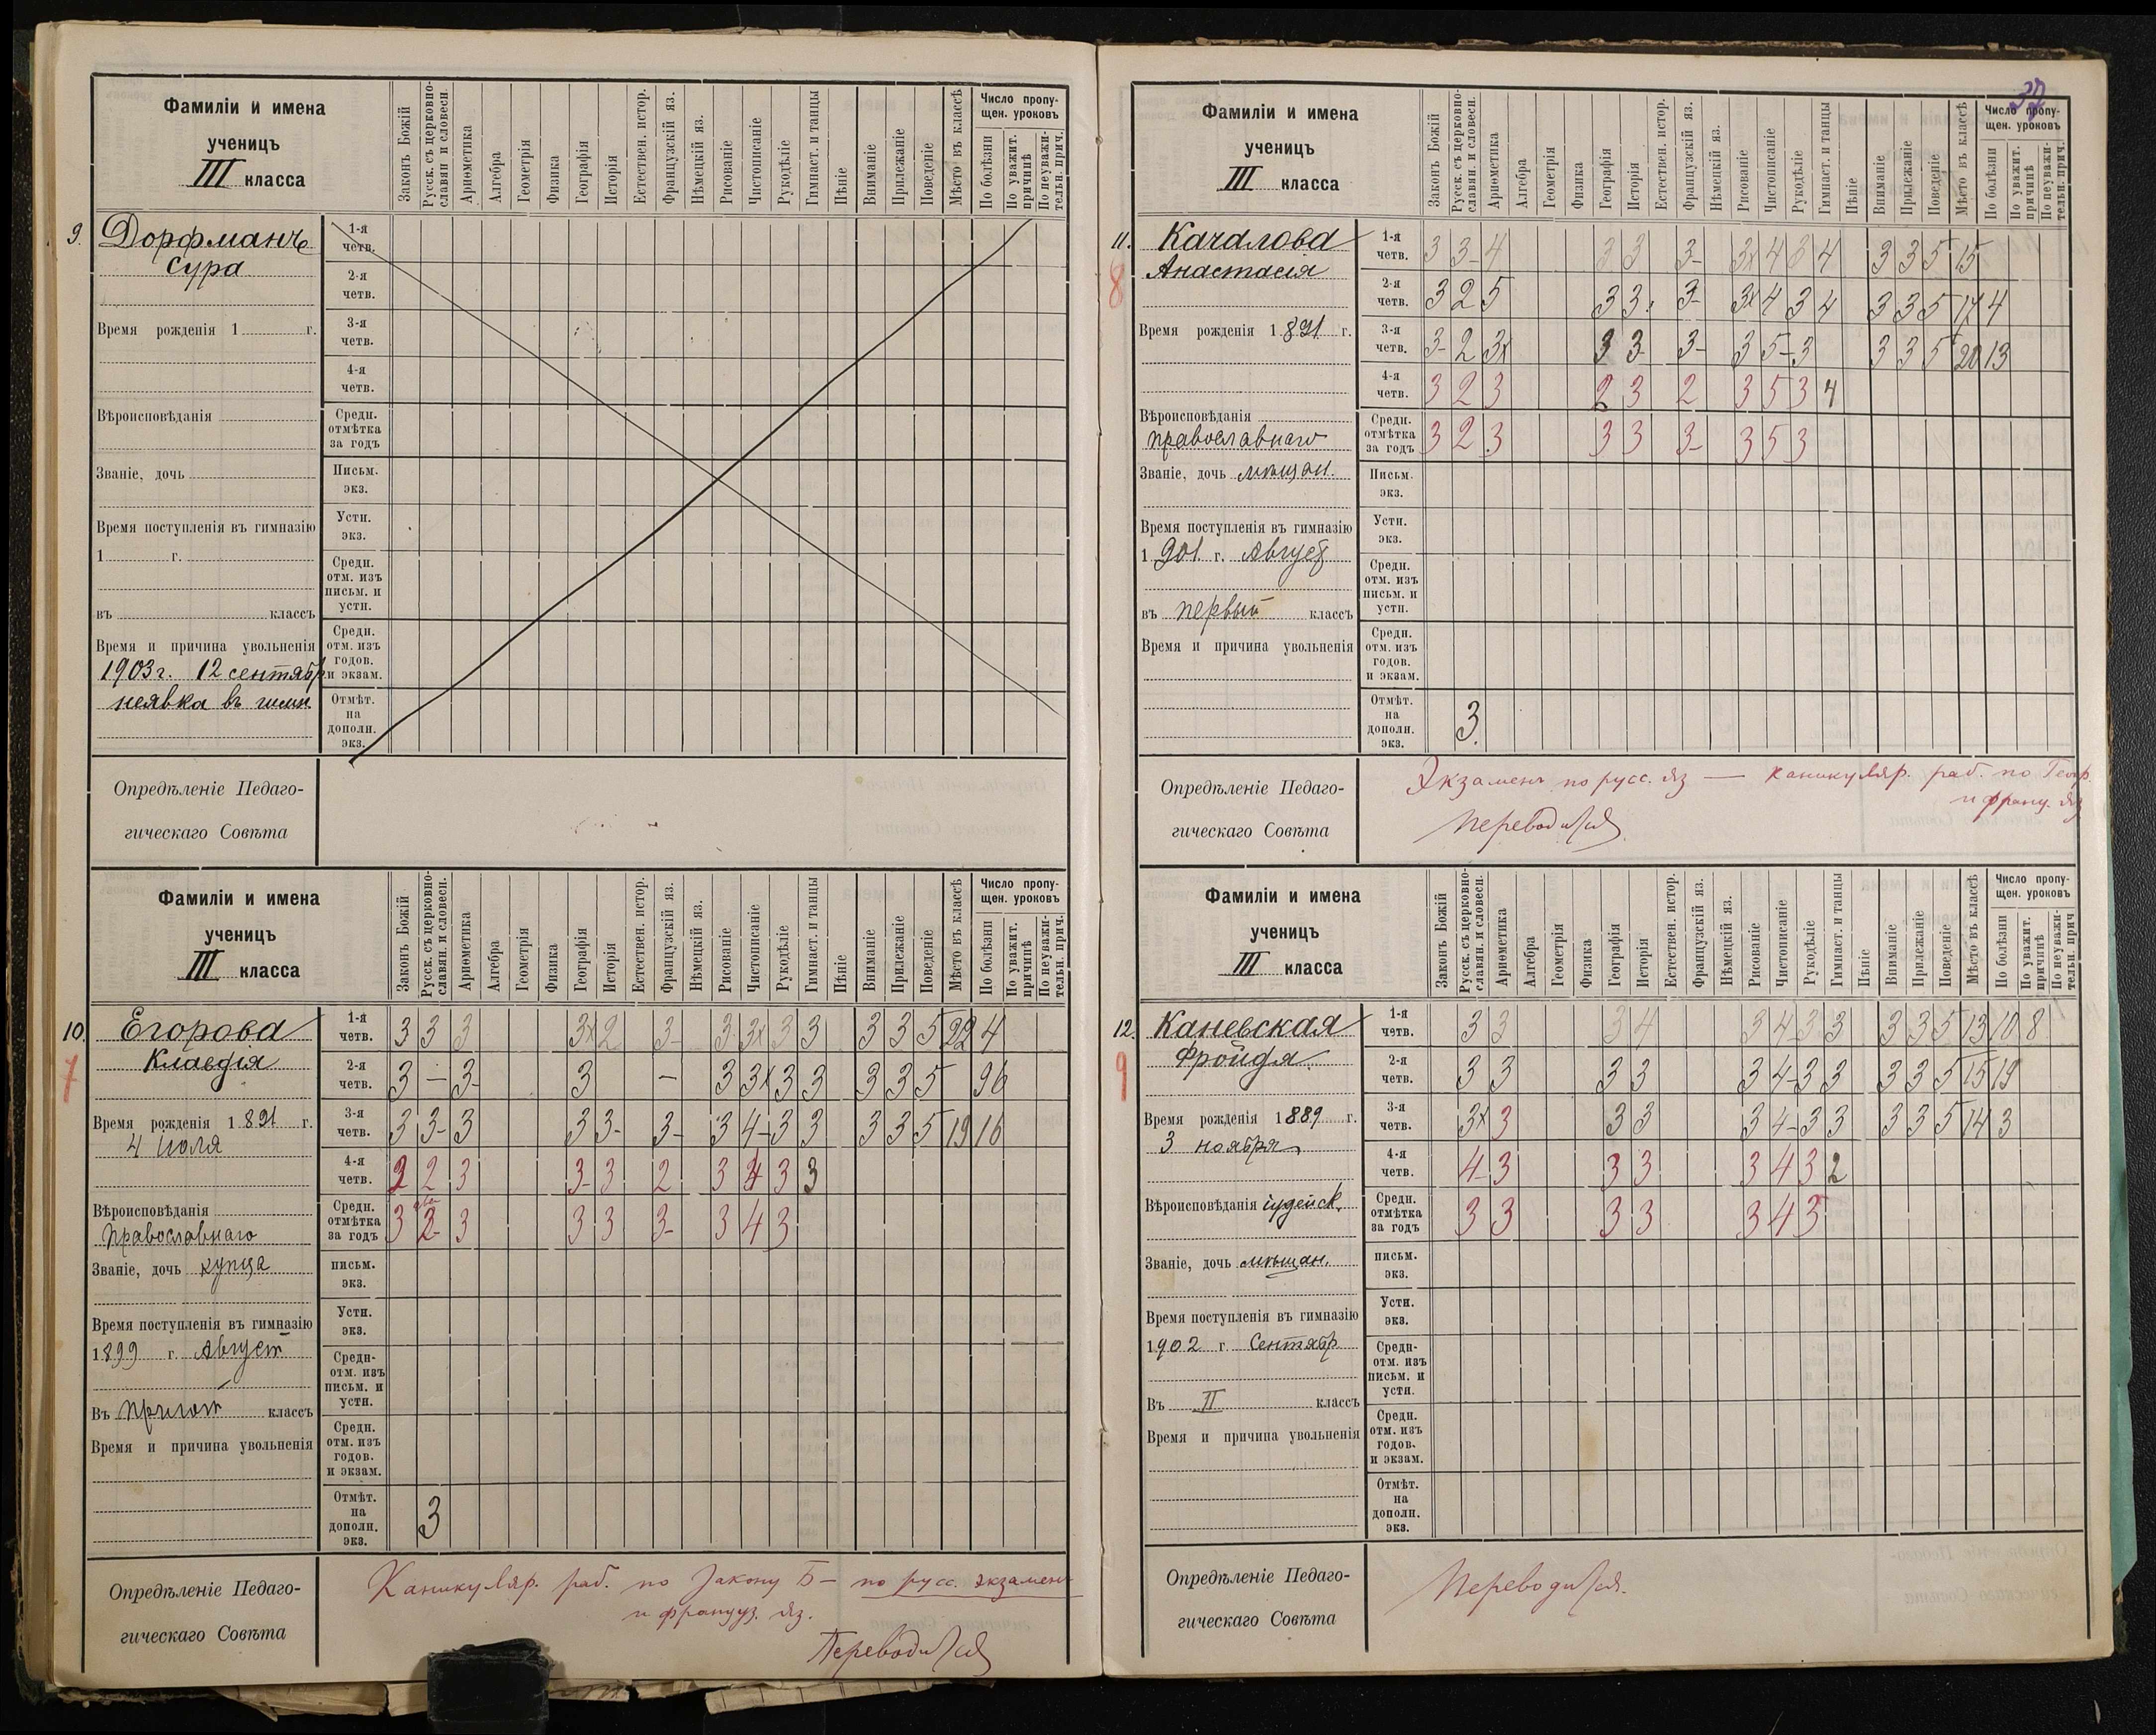 Фамиліи и имена
ученицъ
III класса
Законъ Божій
Русск. съ церковно-
славян. и словесн.
Ариѳметика
Алгебра
Геометрія
Физика
Географія
Исторія
Естествен. истор.
Французскій яз.
Нѣмецкій яз.
Рисованіе
Чистописаніе
Рукодѣліе
Гимнаст. и танцы
Пѣніе
Вниманіе
Прилежаніе
Поведеніе
Мѣсто въ классѣ
Число пропу-
щен. уроковъ
По болѣзни
По уважит.
причинѣ
По неуважи-
тельн. прич.
9. Дорфманъ
Сура
Время рожденія 1 г.
Вѣроисповѣданія
Званіе, дочь
Время поступленія въ гимназію
1 г.
въ классъ
Время и причина увольненія
1903 г. 12 сентябр.
неявка въ гимн.
1-я
четв.
2-я
четв.
3-я
четв.
4-я
четв.
Средн.
отмѣтка
за годъ
Письм.
экз.
Устн.
экз.
Средн.
отм. изъ
письм. и
устн.
Средн.
отм. изъ
годов.
и экзам.
Отмѣт.
на
дополн.
экз.
Опредѣленіе Педаго-
гическаго Совѣта
Фамиліи и имена
ученицъ
III класса
Законъ Божій
Русск. съ церковно-
славян. и словесн.
Ариѳметика
Алгебра
Геометрія
Физика
Географія
Исторія
Естествен. истор.
Французскій яз.
Нѣмецкій яз.
Рисованіе
Чистописаніе
Рукодѣліе
Гимнаст. и танцы
Пѣніе
Вниманіе
Прилежаніе
Поведеніе
Мѣсто въ классѣ
Число пропу-
щен. уроковъ
По болѣзни
По уважит.
причинѣ
По неуважи-
тельн. прич.
10. Егорова
7 Клавдія
Время рожденія 1891 г.
4 июля
Вѣроисповѣданія
православнаго
Званіе, дочь купца
Время поступленія въ гимназію
1899 г. Август
Въ пригот классъ
Время и причина увольненія
1-я
четв. 3 3 3 3x 2 3- 3 3x 3 3 3 3 5 22 4
2-я
четв. 3 — 3- 3 — 3 3x 3 3 3 3 5 96
3-я
четв. 3 3- 3 3 3- 3- 3 4- 3 3 3 3 5 19 16
4-я
четв. 2 2 3 3- 3 2 3 4 3 3
Средн.
отмѣтка
за годъ 3 2 3 3 3 3- 3 4 3
письм.
экз.
Устн.
экз.
Средн-
отм. изъ
письм. и
устн.
Средн.
отм. изъ
годов.
и экзам.
Отмѣт.
на
дополн.
экз. 3
Опредѣленіе Педаго-
гическаго Совѣта
Каникуляр. раб. по Закону Б — по русс. экзамен
и француз. яз.
Переводится
37
Фамиліи и имена
ученицъ
III класса
Законъ Божій
Русск. съ церковно-
славян. и словесн.
Ариѳметика
Алгебра
Геометрія
Физика
Географія
Исторія
Естествен. истор.
Французскій яз.
Нѣмецкій яз.
Рисованіе
Чистописаніе
Рукодѣліе
Гимнаст. и танцы
Пѣніе
Вниманіе
Прилежаніе
Поведеніе
Мѣсто въ классѣ
Число пропу-
щен. уроковъ
По болѣзни
По уважит.
причинѣ
По неуважи-
тельн. прич.
11. Качалова
8 Анастасія
Время рожденія 1891 г.
Вѣроисповѣданія
православнаго
Званіе, дочь мѣщан.
Время поступленія въ гимназію
1901 г. Август
въ первый классъ
Время и причина увольненія
1-я
четв. 3 3- 4 3 3 3- 3x 4 3 4 3 3 5 15
2-я
четв. 3 2 5 3 3 3- 3x 4 3 4 3 3 5 17 4
3-я
четв. 3- 2 3x 3 3 3- 3 5- 3 3 3 5 20 13
4-я
четв. 3 2 3 2 3 2 3 5 3 4
Средн.
отмѣтка
за годъ 3 2 3 3 3 3- 3 5 3
Письм.
экз.
Устн.
экз.
Средн.
отм. изъ
письм. и
устн.
Средн.
отм. изъ
годов.
и экзам.
Отмѣт.
на
дополн.
экз. 3
Опредѣленіе Педаго-
гическаго Совѣта
Экзаменъ по русс. яз — каникуляр. раб. по Геогр.
и франц. яз
Переводится
Фамиліи и имена
ученицъ
III класса
Законъ Божій
Русск. съ церковно-
славян. и словесн.
Ариѳметика
Алгебра
Геометрія
Физика
Географія
Исторія
Естествен. истор.
Французскій яз.
Нѣмецкій яз.
Рисованіе
Чистописаніе
Рукодѣліе
Гимнаст. и танцы
Пѣніе
Вниманіе
Прилежаніе
Поведеніе
Мѣсто въ классѣ
Число пропу-
щен. уроковъ
По болѣзни
По уважит.
причинѣ
По неуважи-
тельн. прич
12. Каневская
9 Фройдя
Время рожденія 1889 г.
3 ноября
Вѣроисповѣданія іудейск.
Званіе, дочь мѣщан.
Время поступленія въ гимназію
1902 г Сентябр
Въ II классъ
Время и причина увольненія
1-я
четв. 3 3 3 4 3 4- 3 3 3 3 5 13 10 8
2-я
четв. 3 3 3 3 3 4- 3 3 3 3 5 15 19
3-я
четв. 3x 3 3 3 3 4- 3 3 3 3 5 14 3
4-я
четв. 4- 3 3 3 3 4 3 2
Средн.
отмѣтка
за годъ 3 3 3 3 3 4 3
письм.
экз.
Устн.
экз.
Средн-
отм. изъ
письм. и
устн.
Средн.
отм. изъ
годов.
и экзам.
Отмѣт.
на
дополн.
экз.
Опредѣленіе Педаго-
гическаго Совѣта
Переводится.